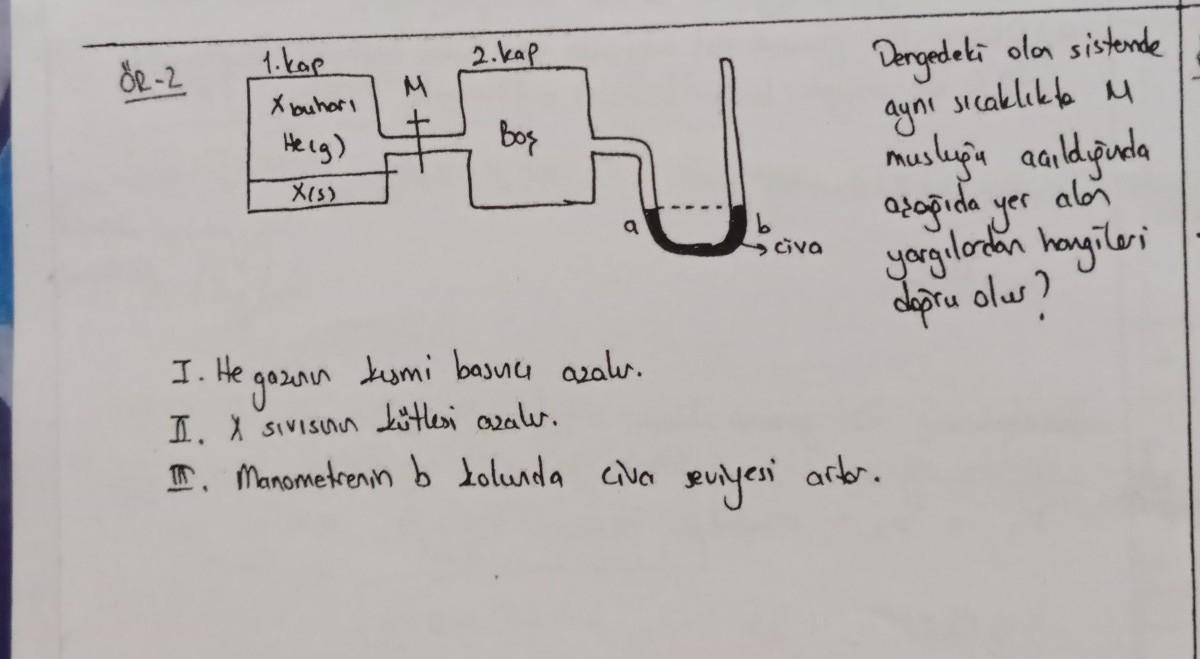 ÖR-2
1.kap
X buharı
He(g)
X(s)
M
2.kap
Boş
a
b
civa
Dengedeki olan sistemde
aynı sıcaklıkta M
musluğu açıldığında
aşağıda yer alan
yargılardan hangileri
doğru olur?
I. He gazının kısmi basıncı azalır.
II. X sıvısının kütlesi azalır.
III. Manometrenin b kolunda civa seviyesi artar.